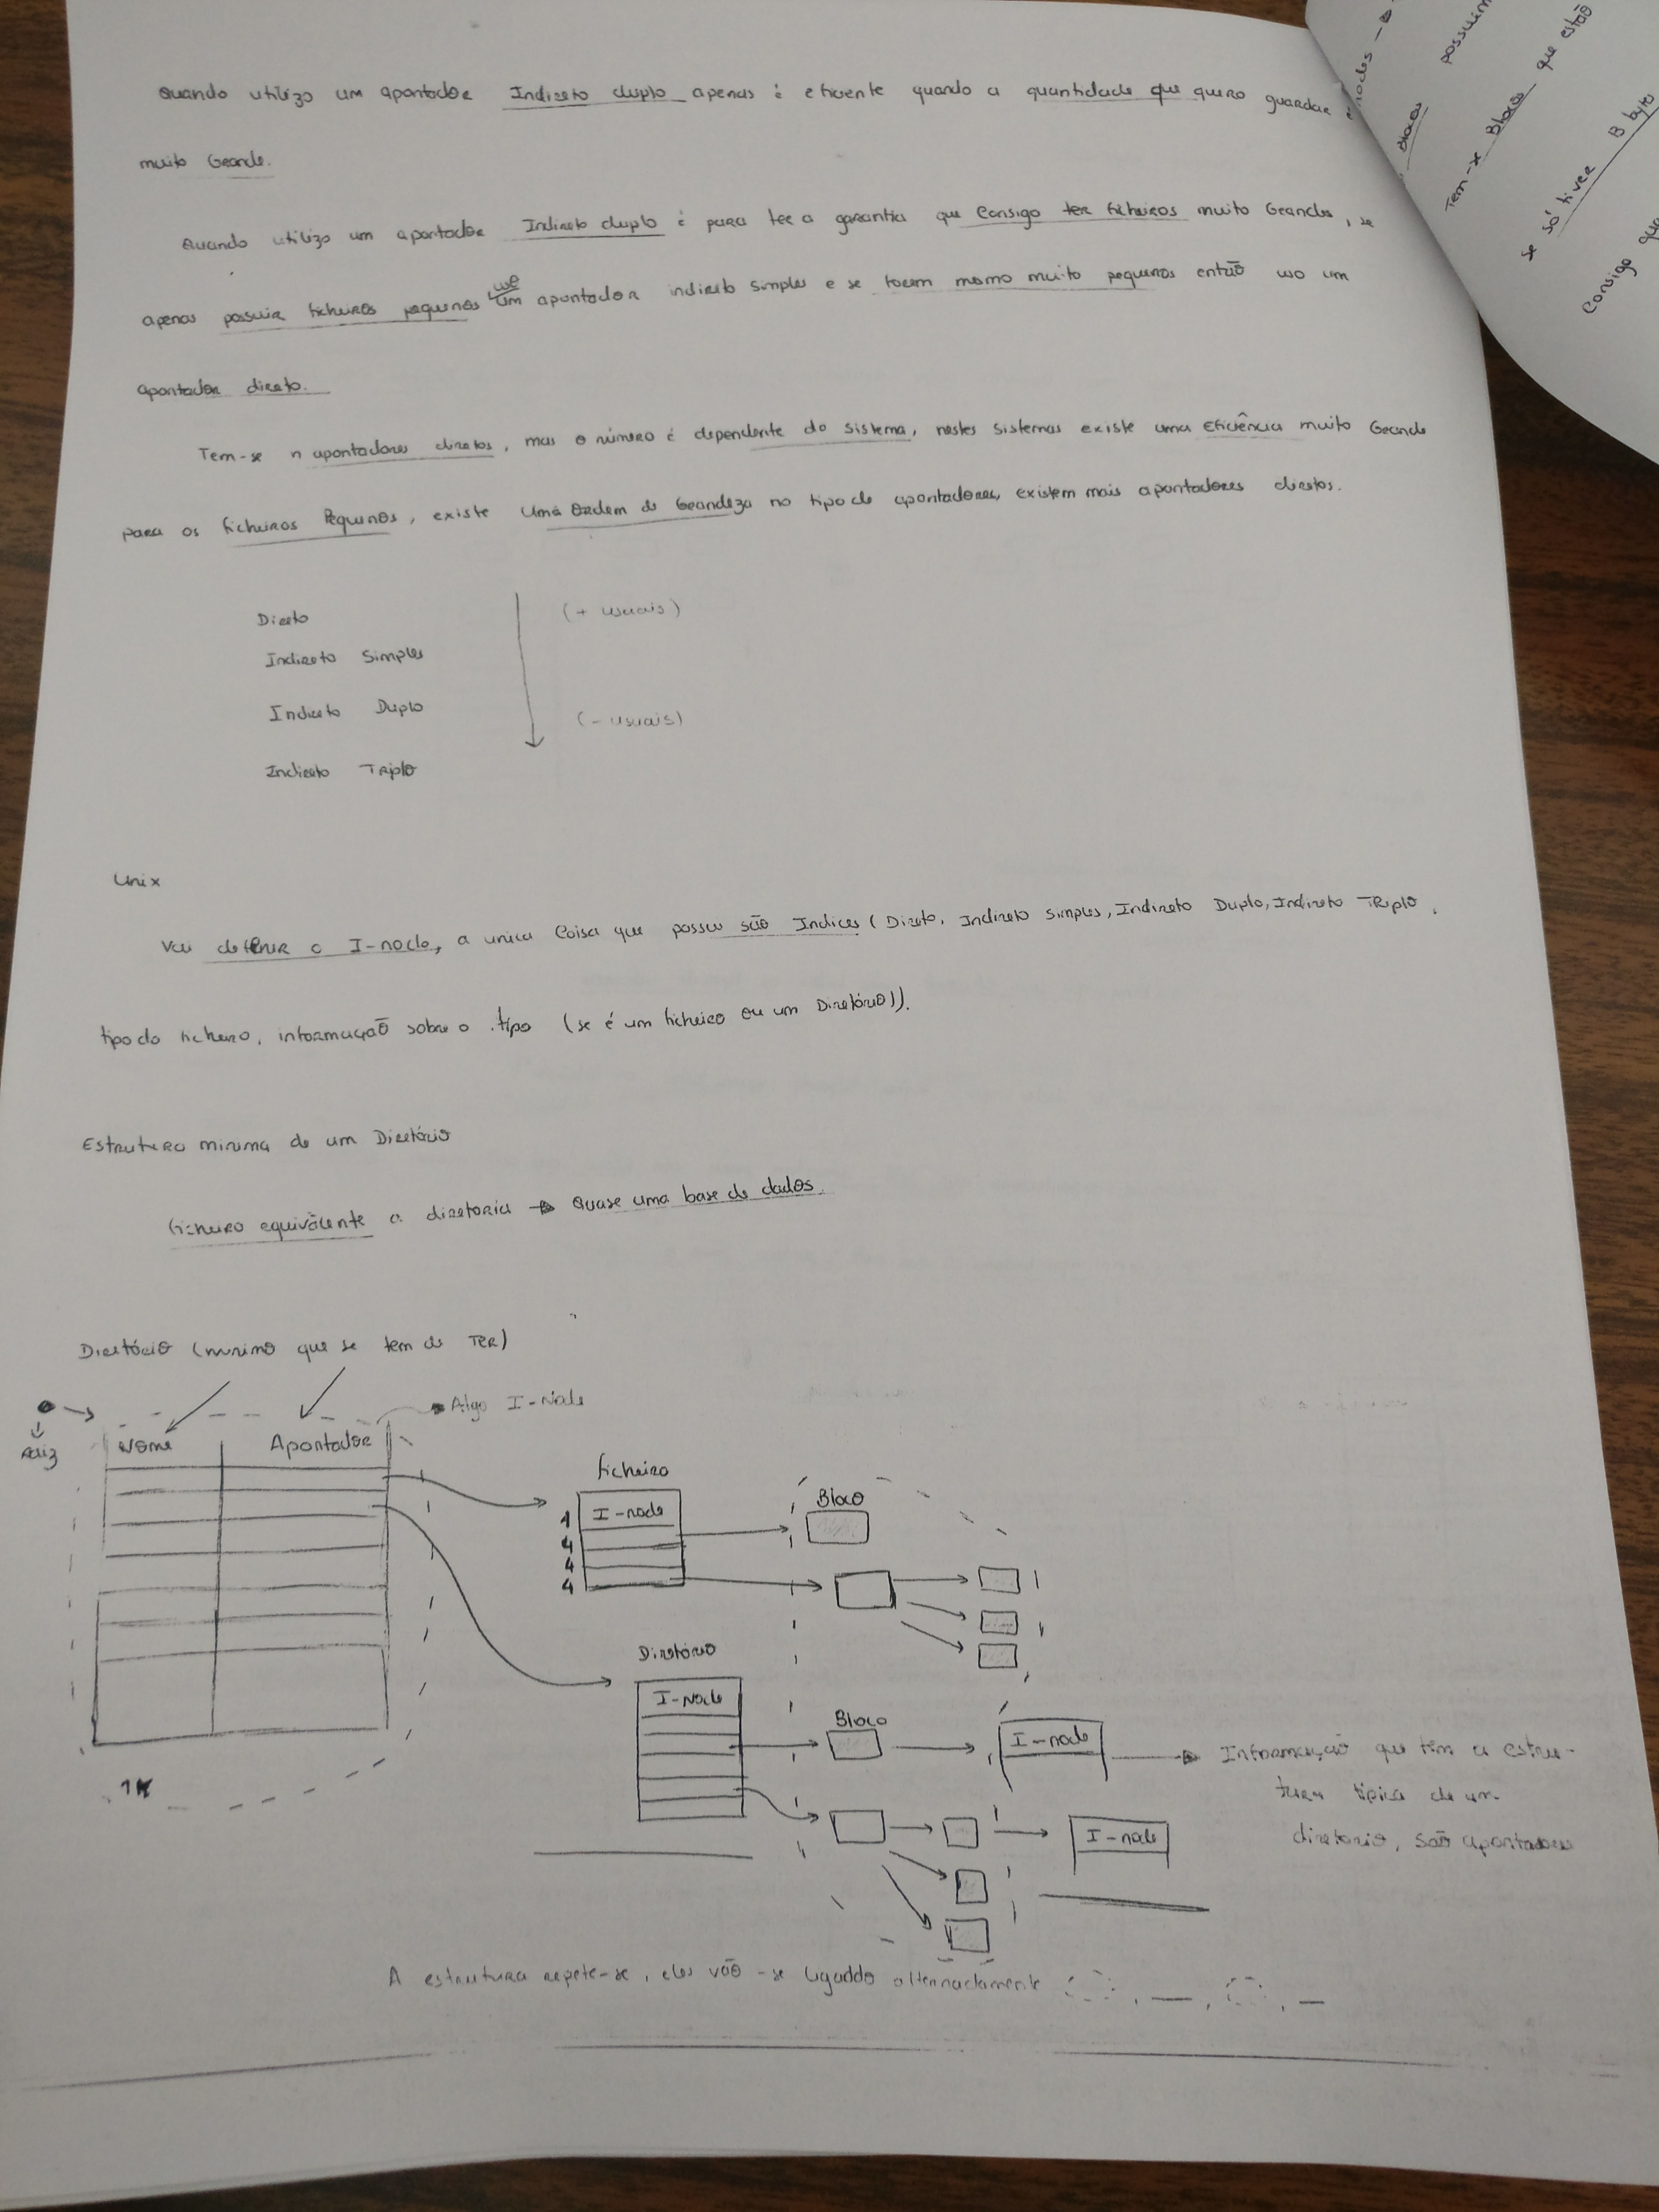 Quando utilizo um apontador Indireto duplo apenas é eficiente quando a quantidade que quero guardar é
muito Grande.
Quando utilizo um apontador Indireto duplo é para ter a garantia que Consigo ter ficheiros muito Grandes, se
apenas possuir ficheiros pequenos uso um apontador indireto simples e se forem mesmo muito pequenos então uso um
apontador direto.
Tem-se n apontadores diretos, mas o número é dependente do sistema, nestes sistemas existe uma eficiência muito Grande
para os ficheiros Pequenos, existe uma ordem de Grandeza no tipo de apontadores, existem mais apontadores diretos.
Direto (+ usuais)
Indireto Simples
Indireto Duplo (- usuais)
Indireto Triplo
Unix
Vai definir o I-node, a unica Coisa que possui são Indices (Direto, Indireto simples, Indireto Duplo, Indireto Triplo,
tipo do ficheiro, informação sobre o tipo (se é um ficheiro ou um Diretório)).
Estrutura minima de um Diretório
ficheiro equivalente a diretoria → Quase uma base de dados.
Diretório (minimo que se tem de TER)
Algo I-Node
Raiz
Nome Apontador
ficheiro
I-node
1
4
4
4
Bloco
Diretório
I-Node
Bloco
I-node
Informação que têm a estru-
tura tipica de um
diretorio, são apontadores
I-node
1K
A estrutura repete-se, eles vão-se ligando alternadamente
nodes →
Blocos possuim
Tem-se Blocos que estão
se só tiver B byts
Consigo